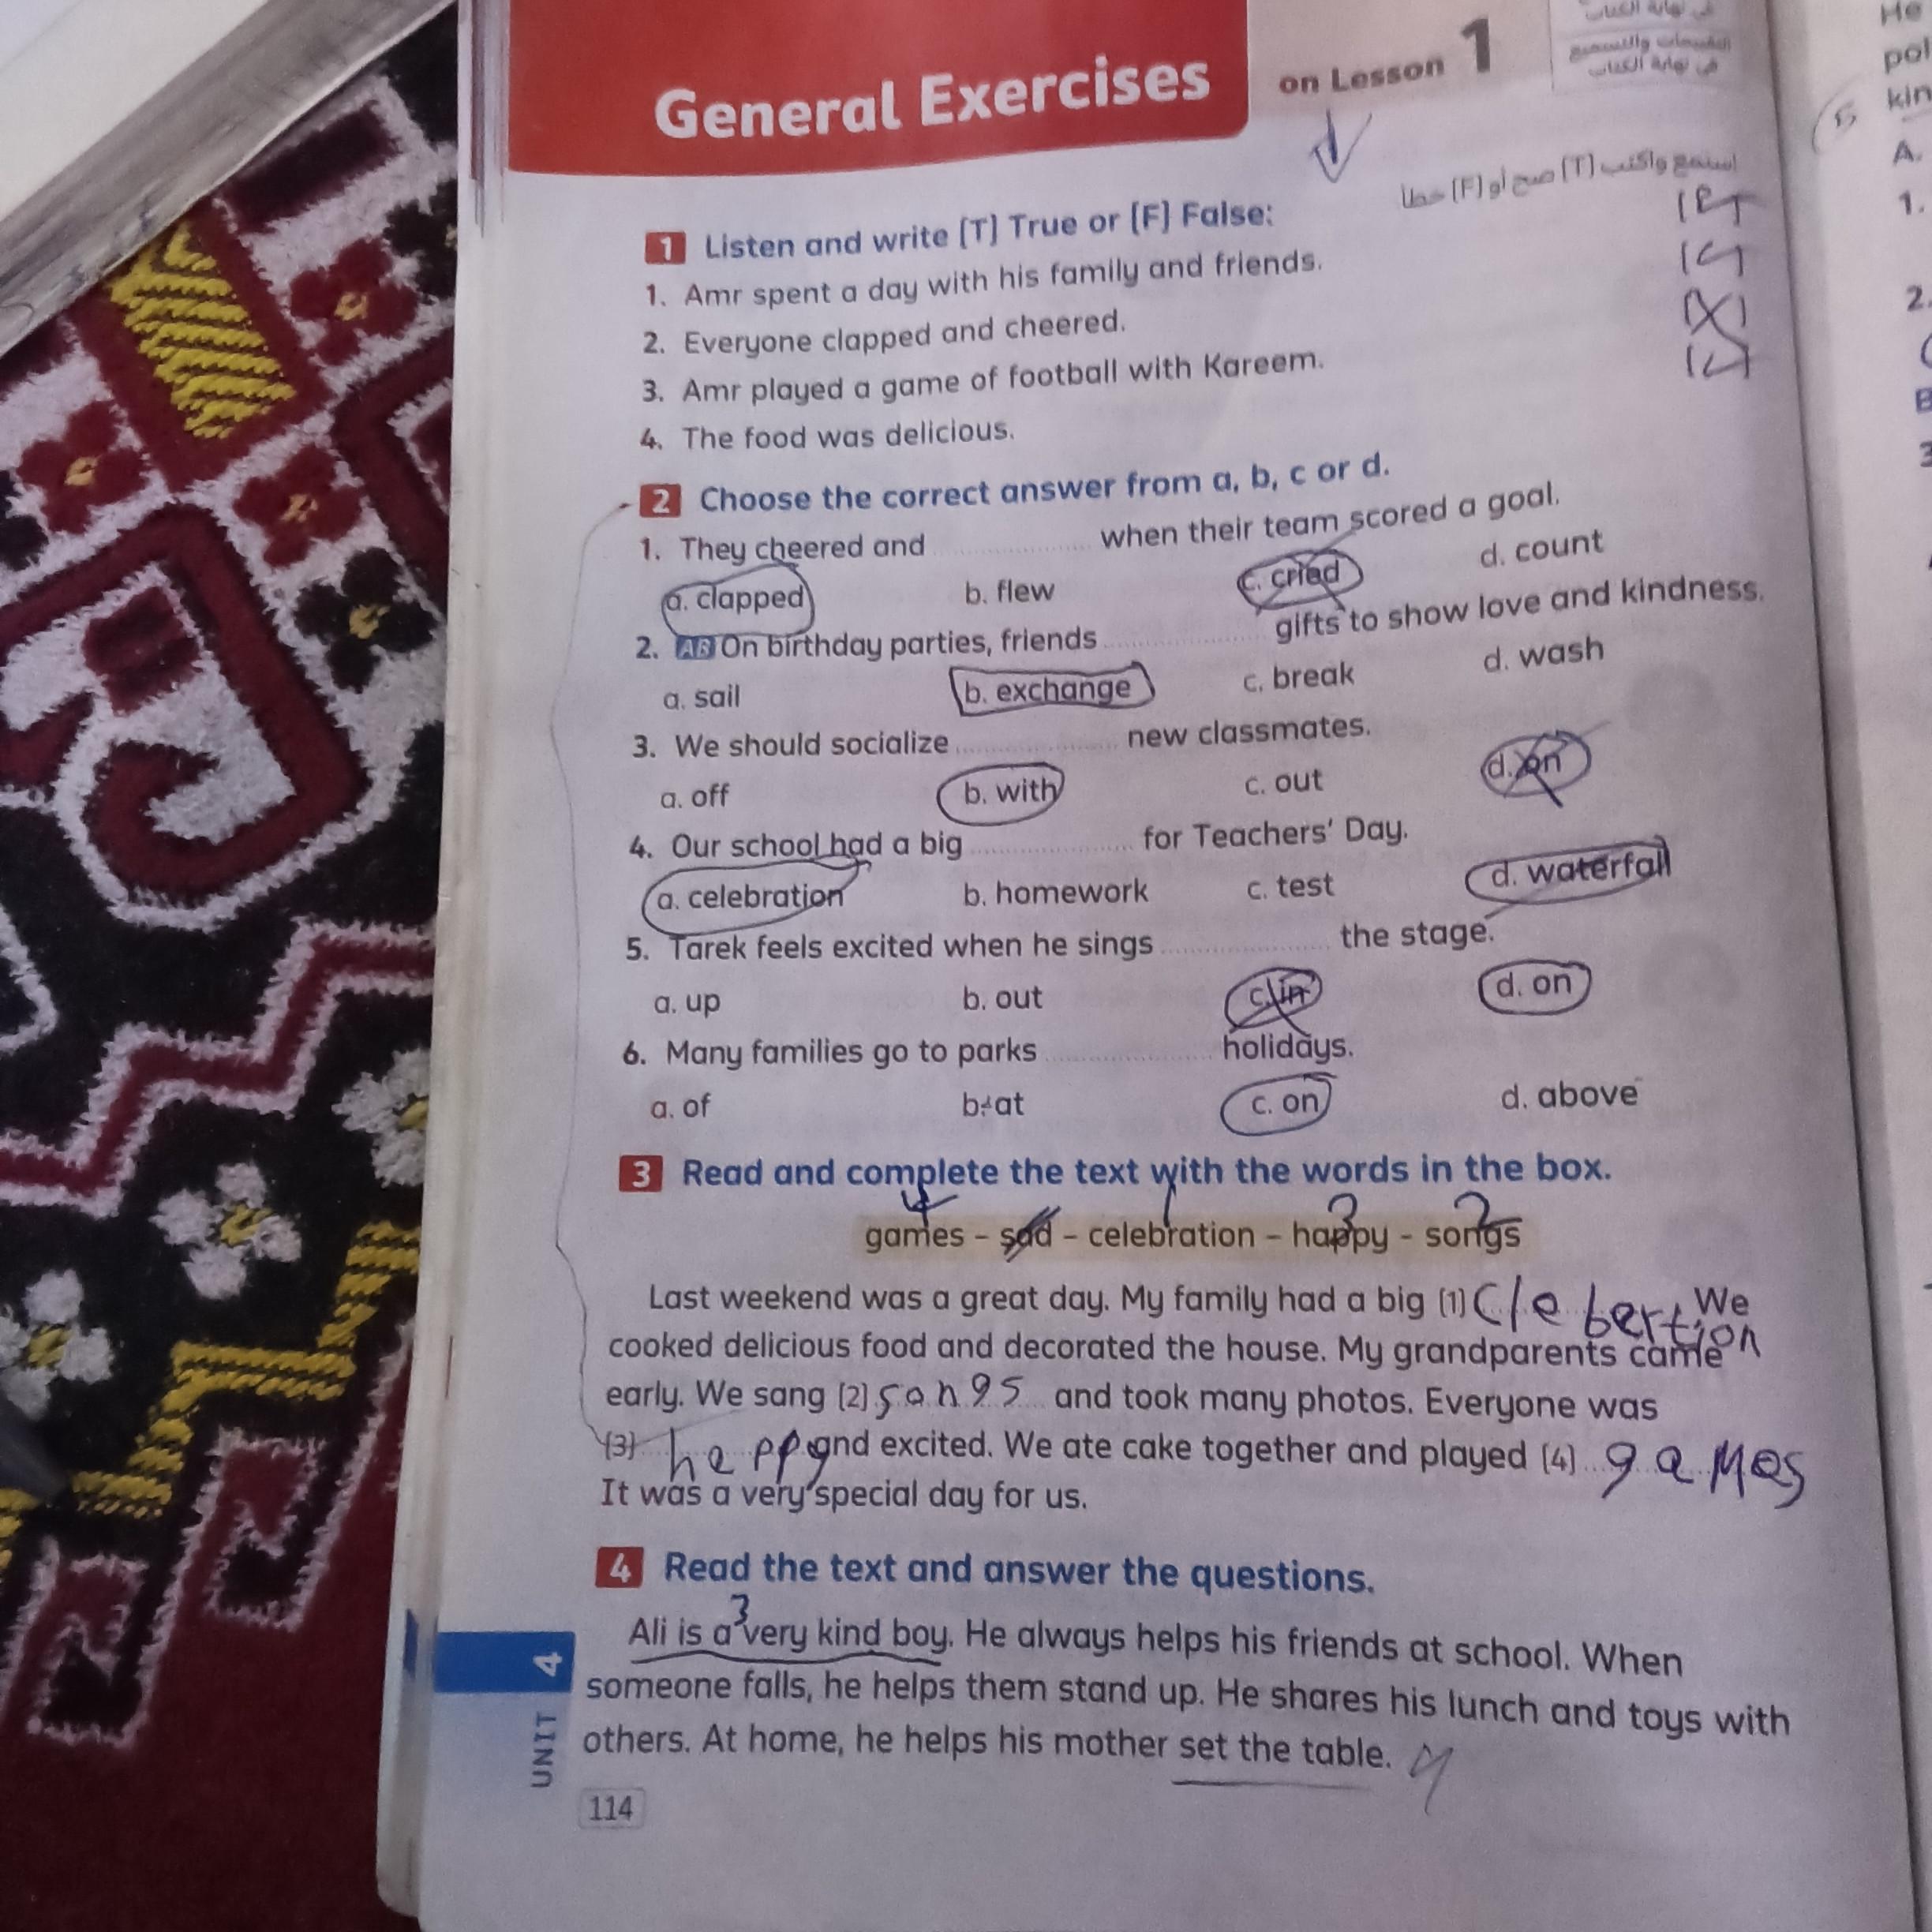 General Exercises on Lesson 1
في نهاية الكتاب
التقييمات والتسميع
في نهاية الكتاب
استمع واكتب (T) صح أو (F) خطأ
1 Listen and write (T) True or (F) False:
1. Amr spent a day with his family and friends.
2. Everyone clapped and cheered.
3. Amr played a game of football with Kareem.
4. The food was delicious.
2 Choose the correct answer from a, b, c or d.
1. They cheered and .................. when their team scored a goal.
a. clapped b. flew c. cried d. count
2. AB On birthday parties, friends .................. gifts to show love and kindness.
a. sail b. exchange c. break d. wash
3. We should socialize .................. new classmates.
a. off b. with c. out d. on
4. Our school had a big .................. for Teachers' Day.
a. celebration b. homework c. test d. waterfall
5. Tarek feels excited when he sings .................. the stage.
a. up b. out c. in d. on
6. Many families go to parks .................. holidays.
a. of b. at c. on d. above
3 Read and complete the text with the words in the box.
4 1 3 2
games - sad - celebration - happy - songs
Last weekend was a great day. My family had a big (1) Clebertion We
cooked delicious food and decorated the house. My grandparents came
early. We sang (2) songs and took many photos. Everyone was
(3) happy and excited. We ate cake together and played (4) games
It was a very special day for us.
4 Read the text and answer the questions.
3
Ali is a very kind boy. He always helps his friends at school. When
someone falls, he helps them stand up. He shares his lunch and toys with
others. At home, he helps his mother set the table. 4
UNIT 4
114
He
pol
kin
A.
1.
2.
B
3